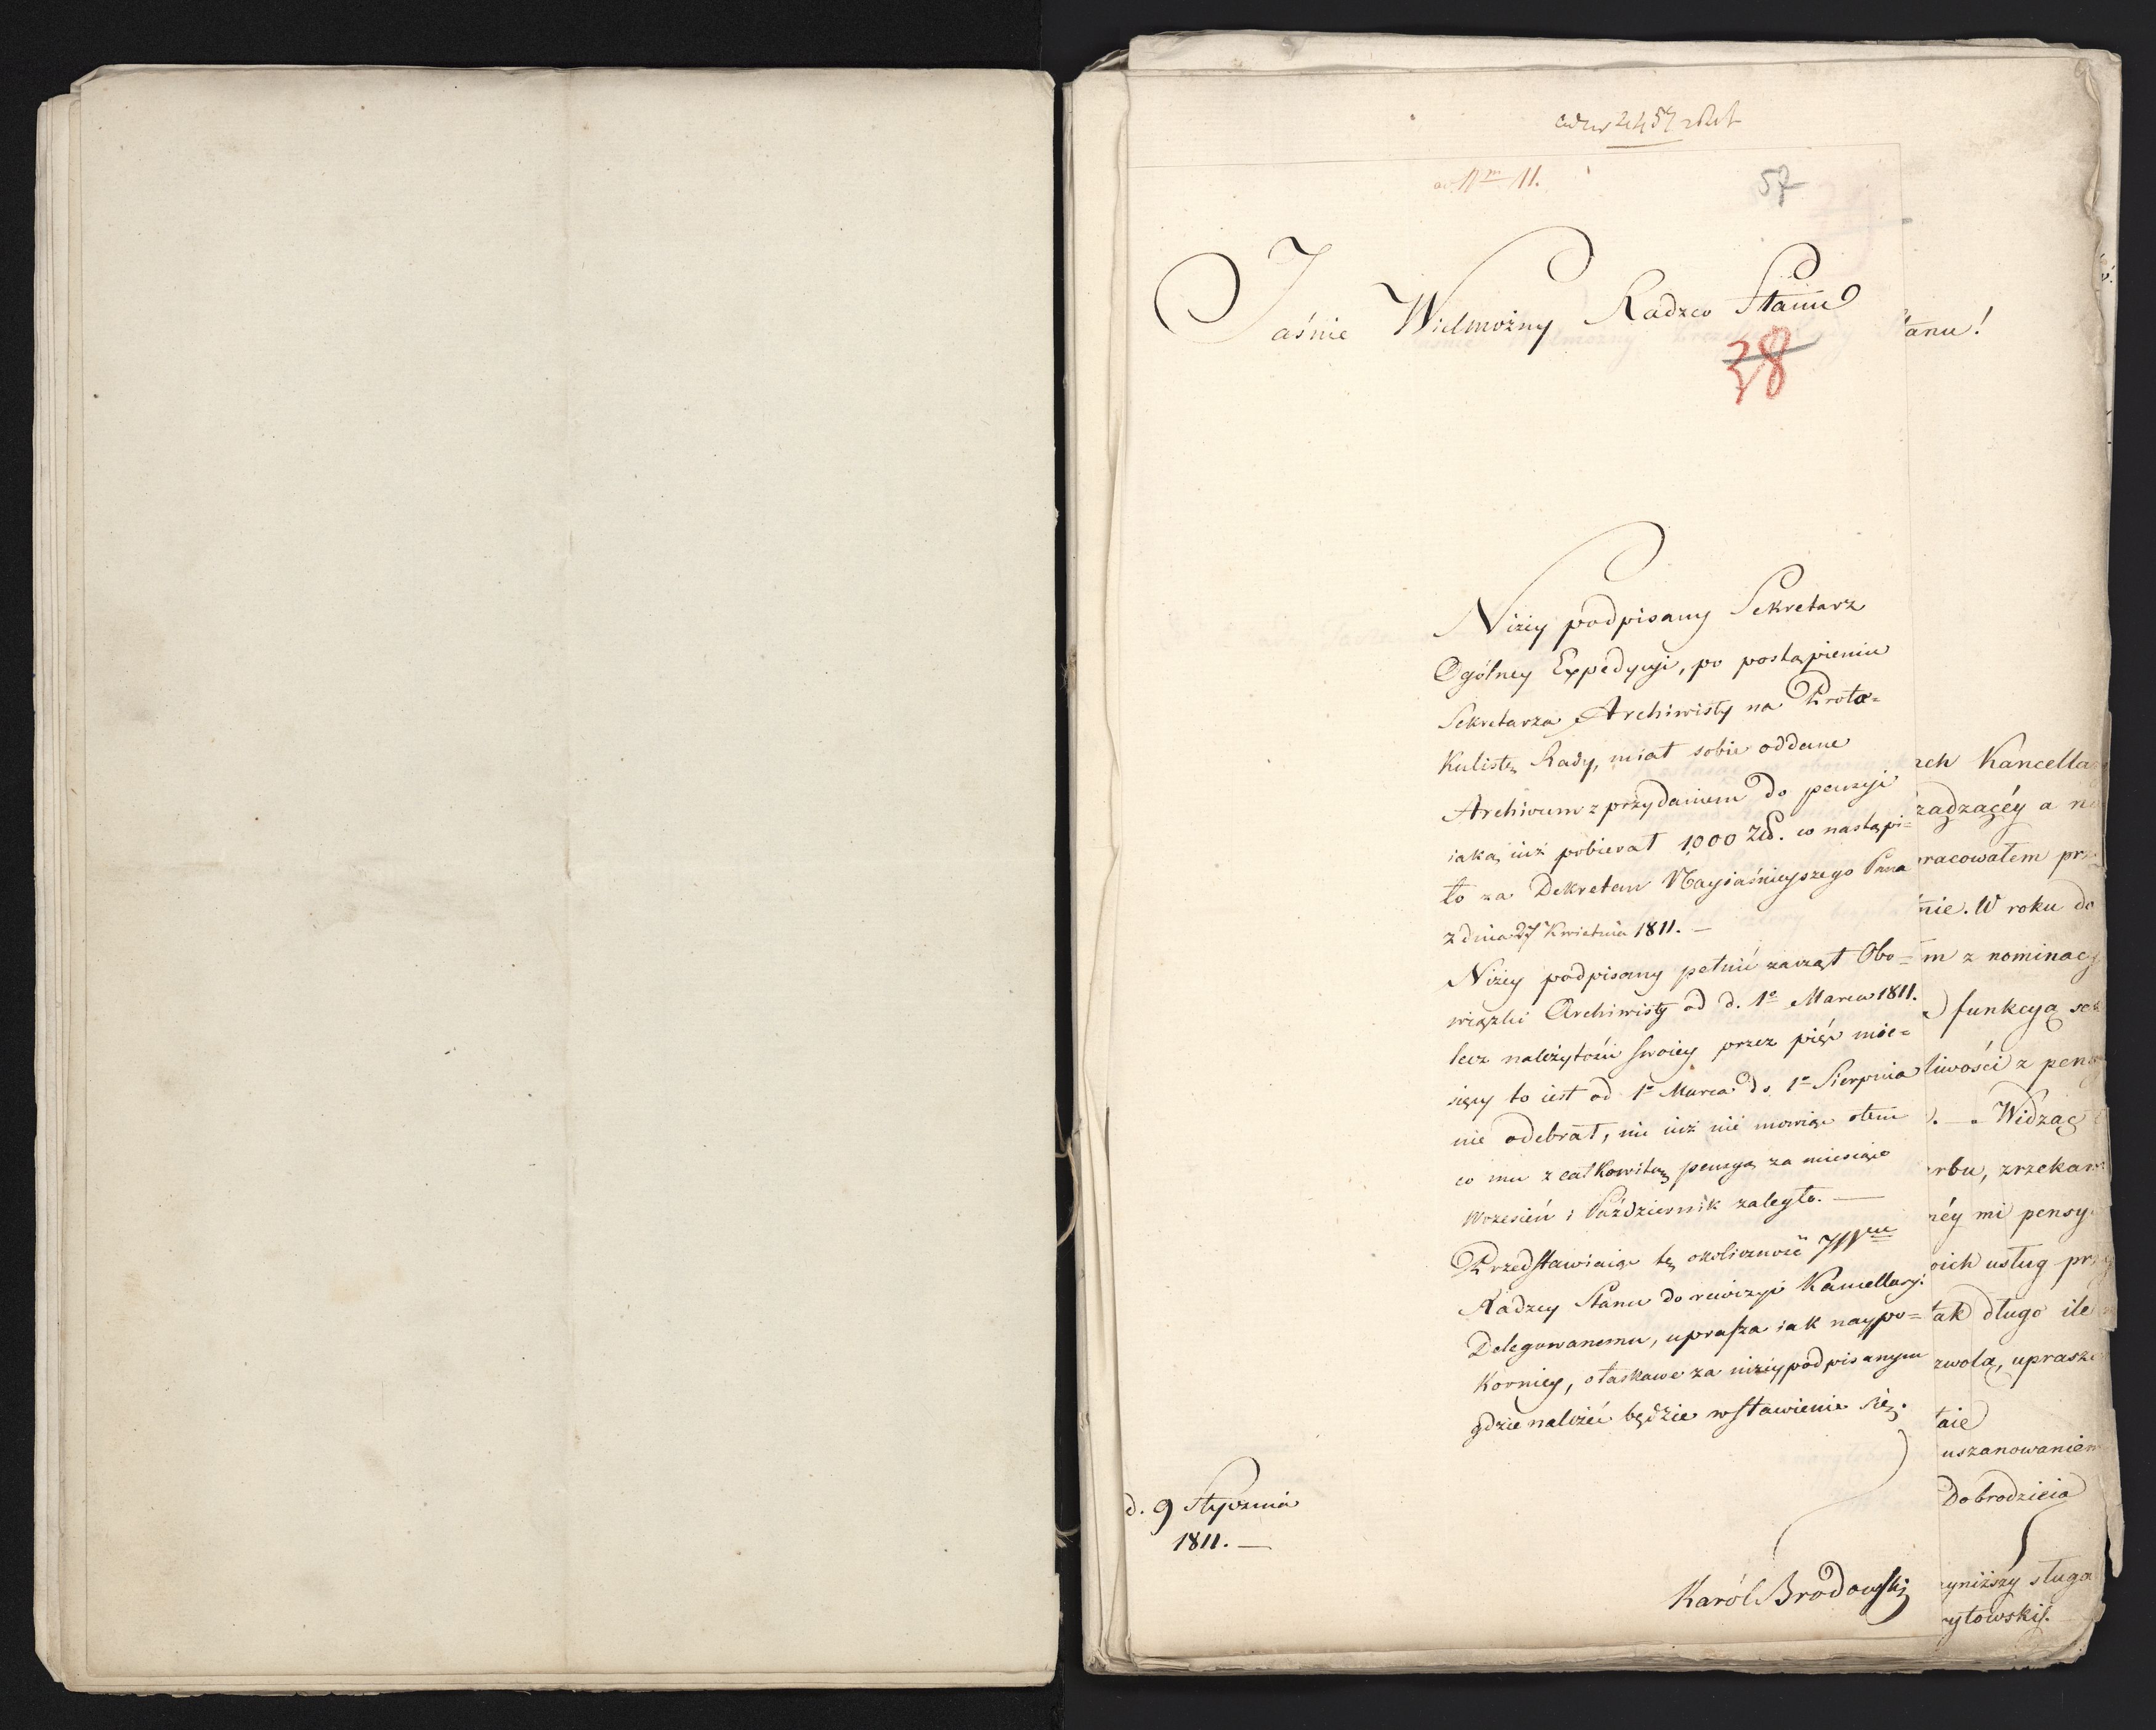 2457
11.
57
Jaśnie Wielmożny Radzco Stanu
38
Niżey podpisany Sekretarz
Ogólney Expedycyi, po postąpieniu
Sekretarza Archiwisty na Proto=
kulistę Rady, miał sobie oddane
Archiwum z przydaniem do pensyi
iaką iuż pobierał 1000 Złł. co nastąpi=
ło za Dekretem Nayiaśnieyszego Pana
z dnia 27 Kwietnia 1811. —
Niżey podpisany pełnić zaczął Obo=
wiązki Archiwisty od d. 1º Marca 1811.
lecz należytości swoiey przez pięć mie=
sięcy to iest od 1º Marca do 1º Sierpnia
nie odebrał, nic iuż nie mowiąc o tem
co mu z całkowitey pensyi za miesiące
Wrzesień i Październik zaległo. —
Przedstawiaiąc tę okoliczność JW
Radzcy Stanu do rewizyi Kancellaryi
Delegowanemu, uprasza iak naypo=
korniey, o łaskawe za niżey podpisanym
gdzie należeć będzie wstawienie się.
d. 9 Stycznia
1811. —
Karól Brodowski
tanu!
ach Kancella
racowałem prz
nie. W roku do
m z nominacy
funkcyą se
liwości z pen
Widząc
rbu, zrzekam
néy mi pensy
oich usług prz
tak długo ile
zwolą, uprasz
taie
uszanowaniem
Dobrodzieia
yniższy sługa
rytowski